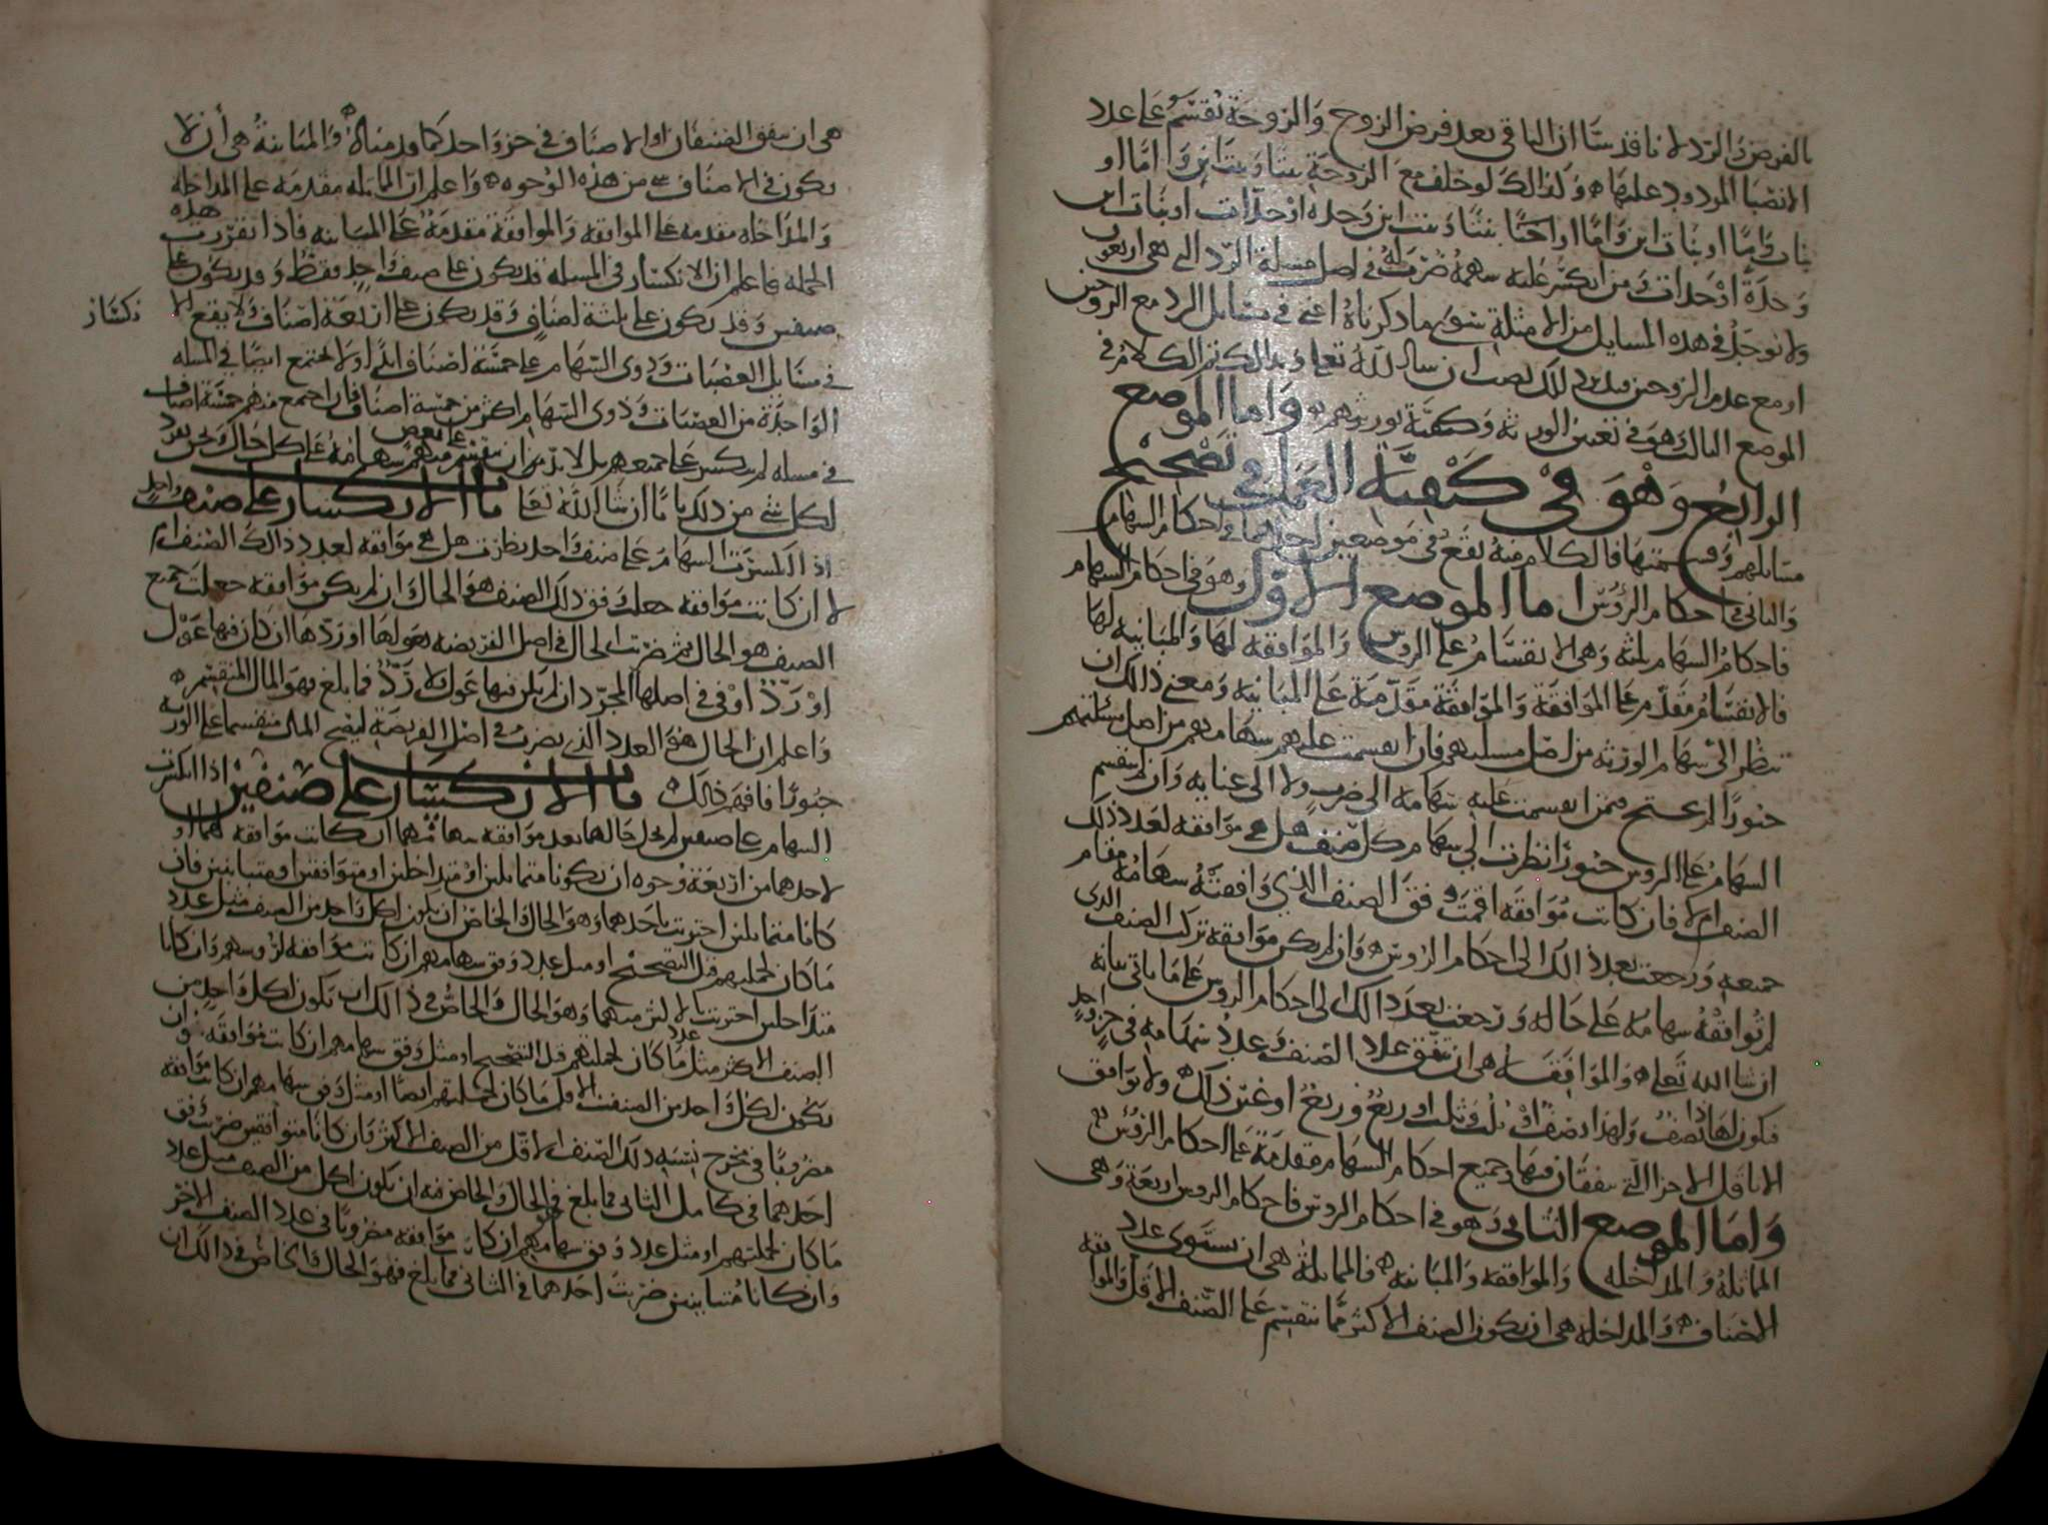 بالفرض والرد لانا قد بينا ان الباقي بعد فرض الزوج والزوجة يقسم على عدد
الانصبا المردود عليها وكذالك لو خلف مع الزوجة بنتا وبنت ابن واما او
بنات واما او بنات ابن واما او اختا بنتا وبنت ابن وجده او جدات او بنات ابن
وجدة او جدات ومن انكسر عليه سهمه ضربته في اصل مسلة الرد التي هي اربعون
ولا توجد في هذه المسايل من الامثلة سوى ما ذكرناه اعني في مسايل الرد مع الزوجين
او مع عدم الزوجين فقس ذلك تصب ان شا الله تعالى وبذالك تم الكلام في
الموضع الثالث وهو في تعيين الورثة وكيفية توريثهم واما الموضع
الرابع وهو في كيفية العمل في تصحيح
مسايلهم وقسمتها فالكلام منه يقع في موضعين احدهما في احكام السهام
والثاني في احكام الرؤس اما الموضع الاول وهو في احكام السهام
فاحكام السهام ثلثة وهي الانقسام على الروس والموافقة لها والمباينة لها
فالانقسام مقدم على الموافقة والموافقة مقدمة على المباينة ومعنى ذالك ان
تنظر الى سهام الورثة من اصل مسلتهم فان انقسمت عليهم سهامهم من اصل مسئلتهم
جبورا لم يحتج فيمن انقسمت عليه سهامه الى ضرب ولا الى عنايه وان لم تنقسم
السهام على الروس جبورا نظرت الى سهام كل صنف هل هي موافقة لعدد ذلك
الصنف ام لا فان كانت موافقة اقمت وفق الصنف الذي وافقته سهامه مقام
جميعه ورجعت بعد ذالك الى احكام الروس وان لم يكن موافقة تركت الصنف الذي
لم توافقه سهامه على حاله ورجعت بعد ذالك الى احكام الروس على ما ياتي بيانه
ان شا الله تعالى والموافقة هي ان يتفق عدد الصنف وعدد سهامه في جزو احد
فيكون لهاذا نصف ولهذا نصف او ثلث وثلث او ربع وربع او غير ذلك ولا توافق
الا باقل الاجزا التي يتفقان فيها وجميع احكام السهام مقدمة على احكام الرؤس
واما الموضع الثاني وهو في احكام الروس فاحكام الروس اربعة وهي
المماثلة والمداخله والموافقه والمباينه فالمماثلة هي ان يستوي عدد
الاصناف والمداخلة هي ان يكون الصنف الاكثر مما ينقسم على الصنف الاقل والموافقه
هي ان يتفق الصنفان او الاصناف في جزو احد كما قدمناه والمباينة هي أن لا
يكون في الاصناف شي من هذه الوجوه واعلم ان المماثله مقدمة على المداخلة
والمداخله مقدمه على الموافقه والموافقة مقدمة على المباينه فاذا تقررت هذه
الجمله فاعلم ان الانكسار في المسله قد يكون على صنف واحد فقط وقد يكون على
صنفين وقد يكون على ثلثة اصناف وقد يكون على اربعة اصناف ولا يقع الا
نكسار
في مسايل العصبات وذوي السهام على خمسة اصناف ابدا ولا يجتمع ايضا في المسله
الواحدة من العصبات وذوي السهام اكثر من خمسة اصناف فان اجتمع منهم خمسة اصناف
في مسله لم ينكسر على جميعهم بل لا بد من ان تنقسم على بعض منهم سهامه على كل حال ونحن نفرد
لكل شي من ذلك بابا ان شا الله تعالى باب الانكسار على صنف واحد
اذا انكسرت السهام على صنف واحد نظرت هل هي موافقه لعدد ذالك الصنف ام
لا ان كانت موافقه جعلت وفق ذلك الصنف هو الحال وان لم يكن موافقه جعلت جميع
الصنف هو الحال ثم ضربت الحال في اصل الفريضه بعولها او ردها ان كان فيها عول
او رد او في اصلها المجرد ان لم يكن فيها عول ولا رد فما بلغ فهو المال المنقسم
واعلم ان الحال هو العدد الذي يضرب في اصل الفريضة ليصح المال منقسما على الورثه
جبورا فافهم ذالك باب الانكسار على صنفين اذا انكسرت
السهام على صنفين لم يخل حالهما بعد موافقه سهامهما ان كانت موافقه لهما او
لاحدهما من اربعة وجوه ان يكونا متماثلين او متداخلين او متوافقين او متباينين فان
كانا متماثلين اجتزيت باحدهما وهو الحال والخاص ان يكون لكل واحد من الصنف مثل عدد
ما كان لجملتهم قبل التصحيح او مثل عدد وفق سهامهم ان كانت موافقه لرؤسهم وان كانا
متداخلين اجتزيت بالاكثر منهما وهو الحال والخاص في ذالك ان يكون لكل واحد من
الصنف الاكثر مثل عدد ما كان لجملتهم قبل التصحيح او مثل وفق سهامهم ان كانت موافقه وان
يكون لكل واحد من الصنف الاقل ما كان لجملتهم ايضا او مثل وفق سهامهم ان كانت موافقه
مضروبا في مخرج نسبه ذلك الصنف الاقل من الصنف الاكثر وان كانا متوافقين ضربت وفق
احدهما في كامل الثاني فما بلغ فهو الحال والخاص فيه ان يكون لكل من الصنف مثل عدد
ما كان لجملتهم او مثل عدد وفق سهامهم ان كانت موافقه مضروبا في عدد الصنف الاخر
وان كانا متباينين ضربت احدهما في الثاني فما بلغ فهو الحال والخاص في ذالك ان